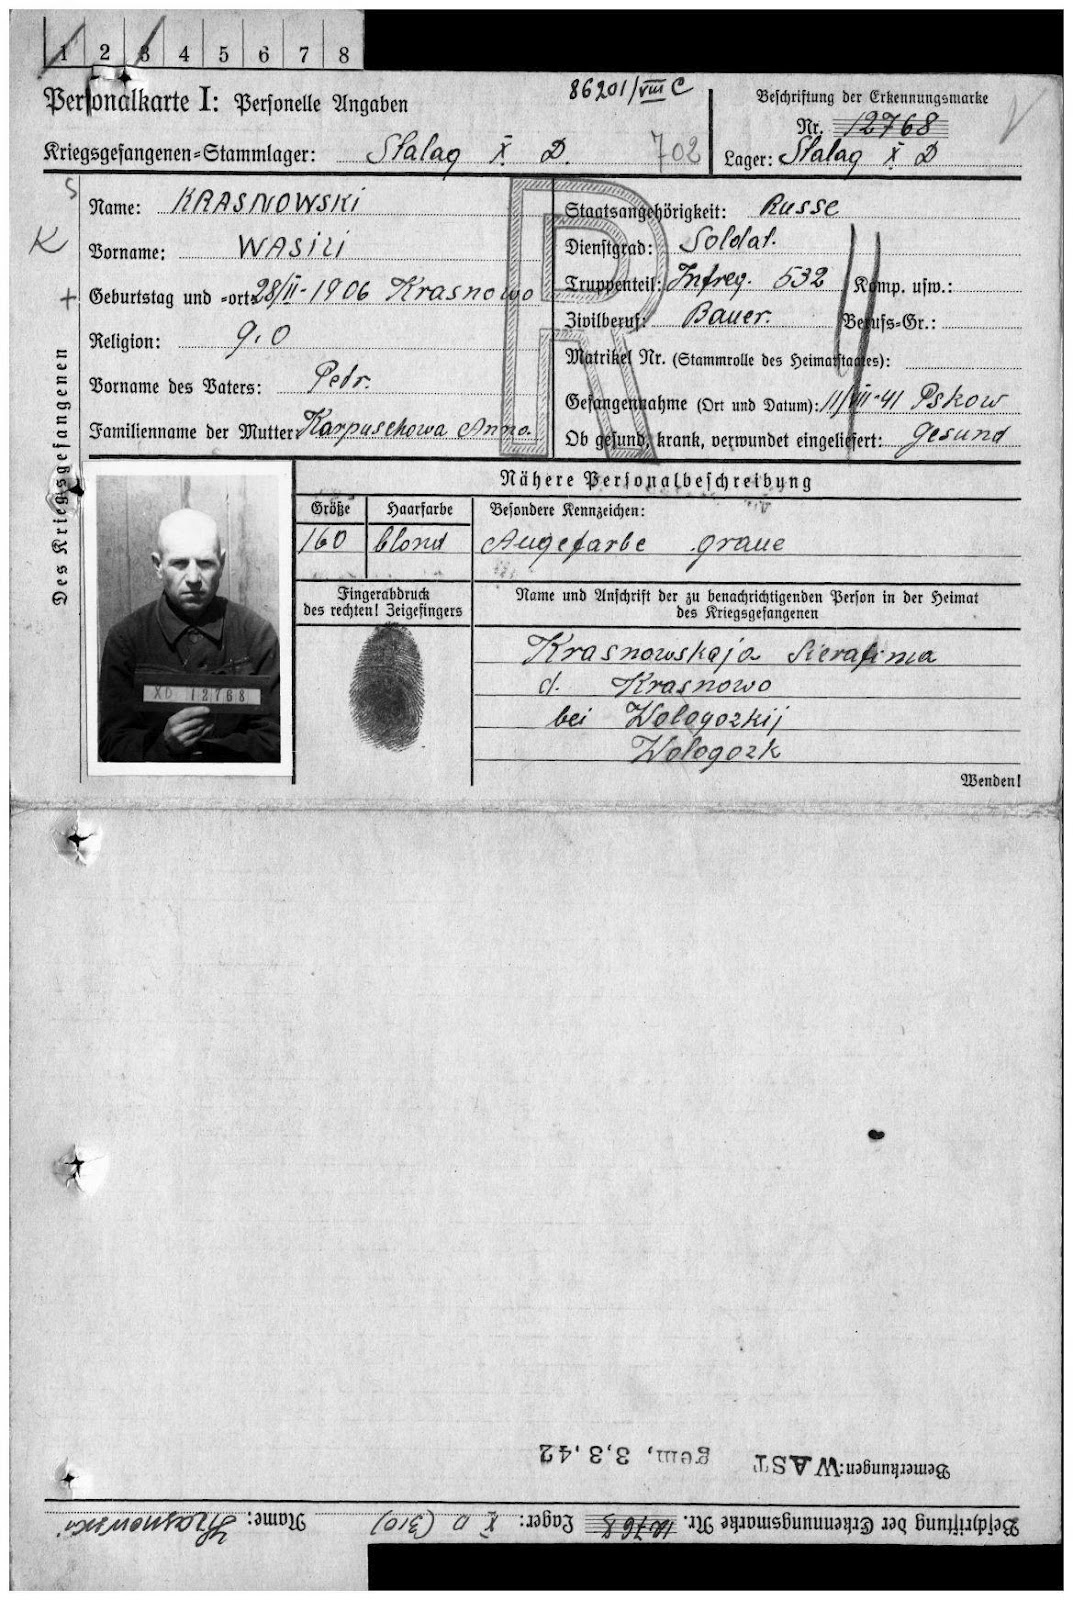 1 2 3 4 5 6 7 8
Personalkarte I: Personelle Angaben
86201/VIII C
Beschriftung der Erkennungsmarke
Nr. 12768
Kriegsgefangenen-Stammlager: Stalag X D.
702
Lager: Stalag X D
Des Kriegsgefangenen
S
K
+
R
Name: KRASNOWSKI
Vorname: WASILI
Geburtstag und -ort: 28/II-1906 Krasnowo
Religion: g.o
Vorname des Vaters: Petr.
Familienname der Mutter: Karpuschowa Anna.
Staatsangehörigkeit: Russe
Dienstgrad: Soldat.
Truppenteil: Infreg. 532 Komp. usw.:
Zivilberuf: Bauer. Berufs-Gr.:
Matrikel Nr. (Stammrolle des Heimatstaates):
Gefangennahme (Ort und Datum): 11/VII-41 Pskow
Ob gesund, krank, verwundet eingeliefert: gesund
Nähere Personalbeschreibung
Größe Haarfarbe Besondere Kennzeichen:
160 blond Augefarbe graue
Fingerabdruck
des rechten! Zeigefingers
XD 12768
Name und Anschrift der zu benachrichtigenden Person in der Heimat
des Kriegsgefangenen
Krasnowskaja Sierafima
d. Krasnowo
bei Wologozkij
Wologozk
Wenden!
Bemerkungen: WAST gem, 3,3,42
Beschriftung der Erkennungsmarke Nr. 12768 Lager: X D (310) Name: Krasnowski